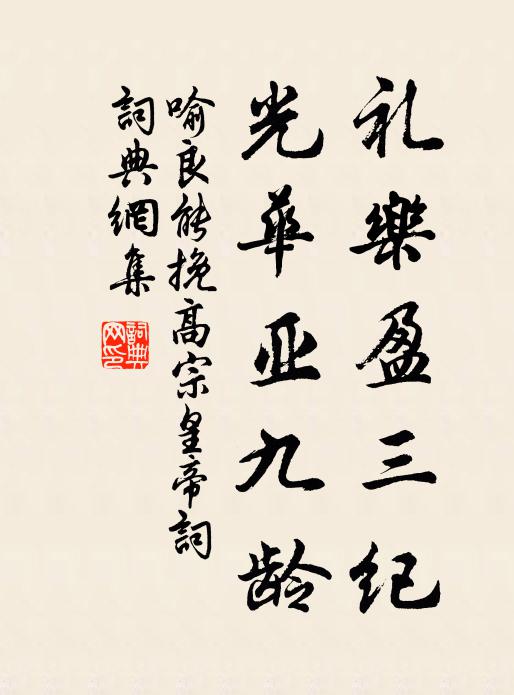 礼樂盈三纪
光華亚九龄
喻良能挽高宗皇帝詞
詞典網集
詞典
网印